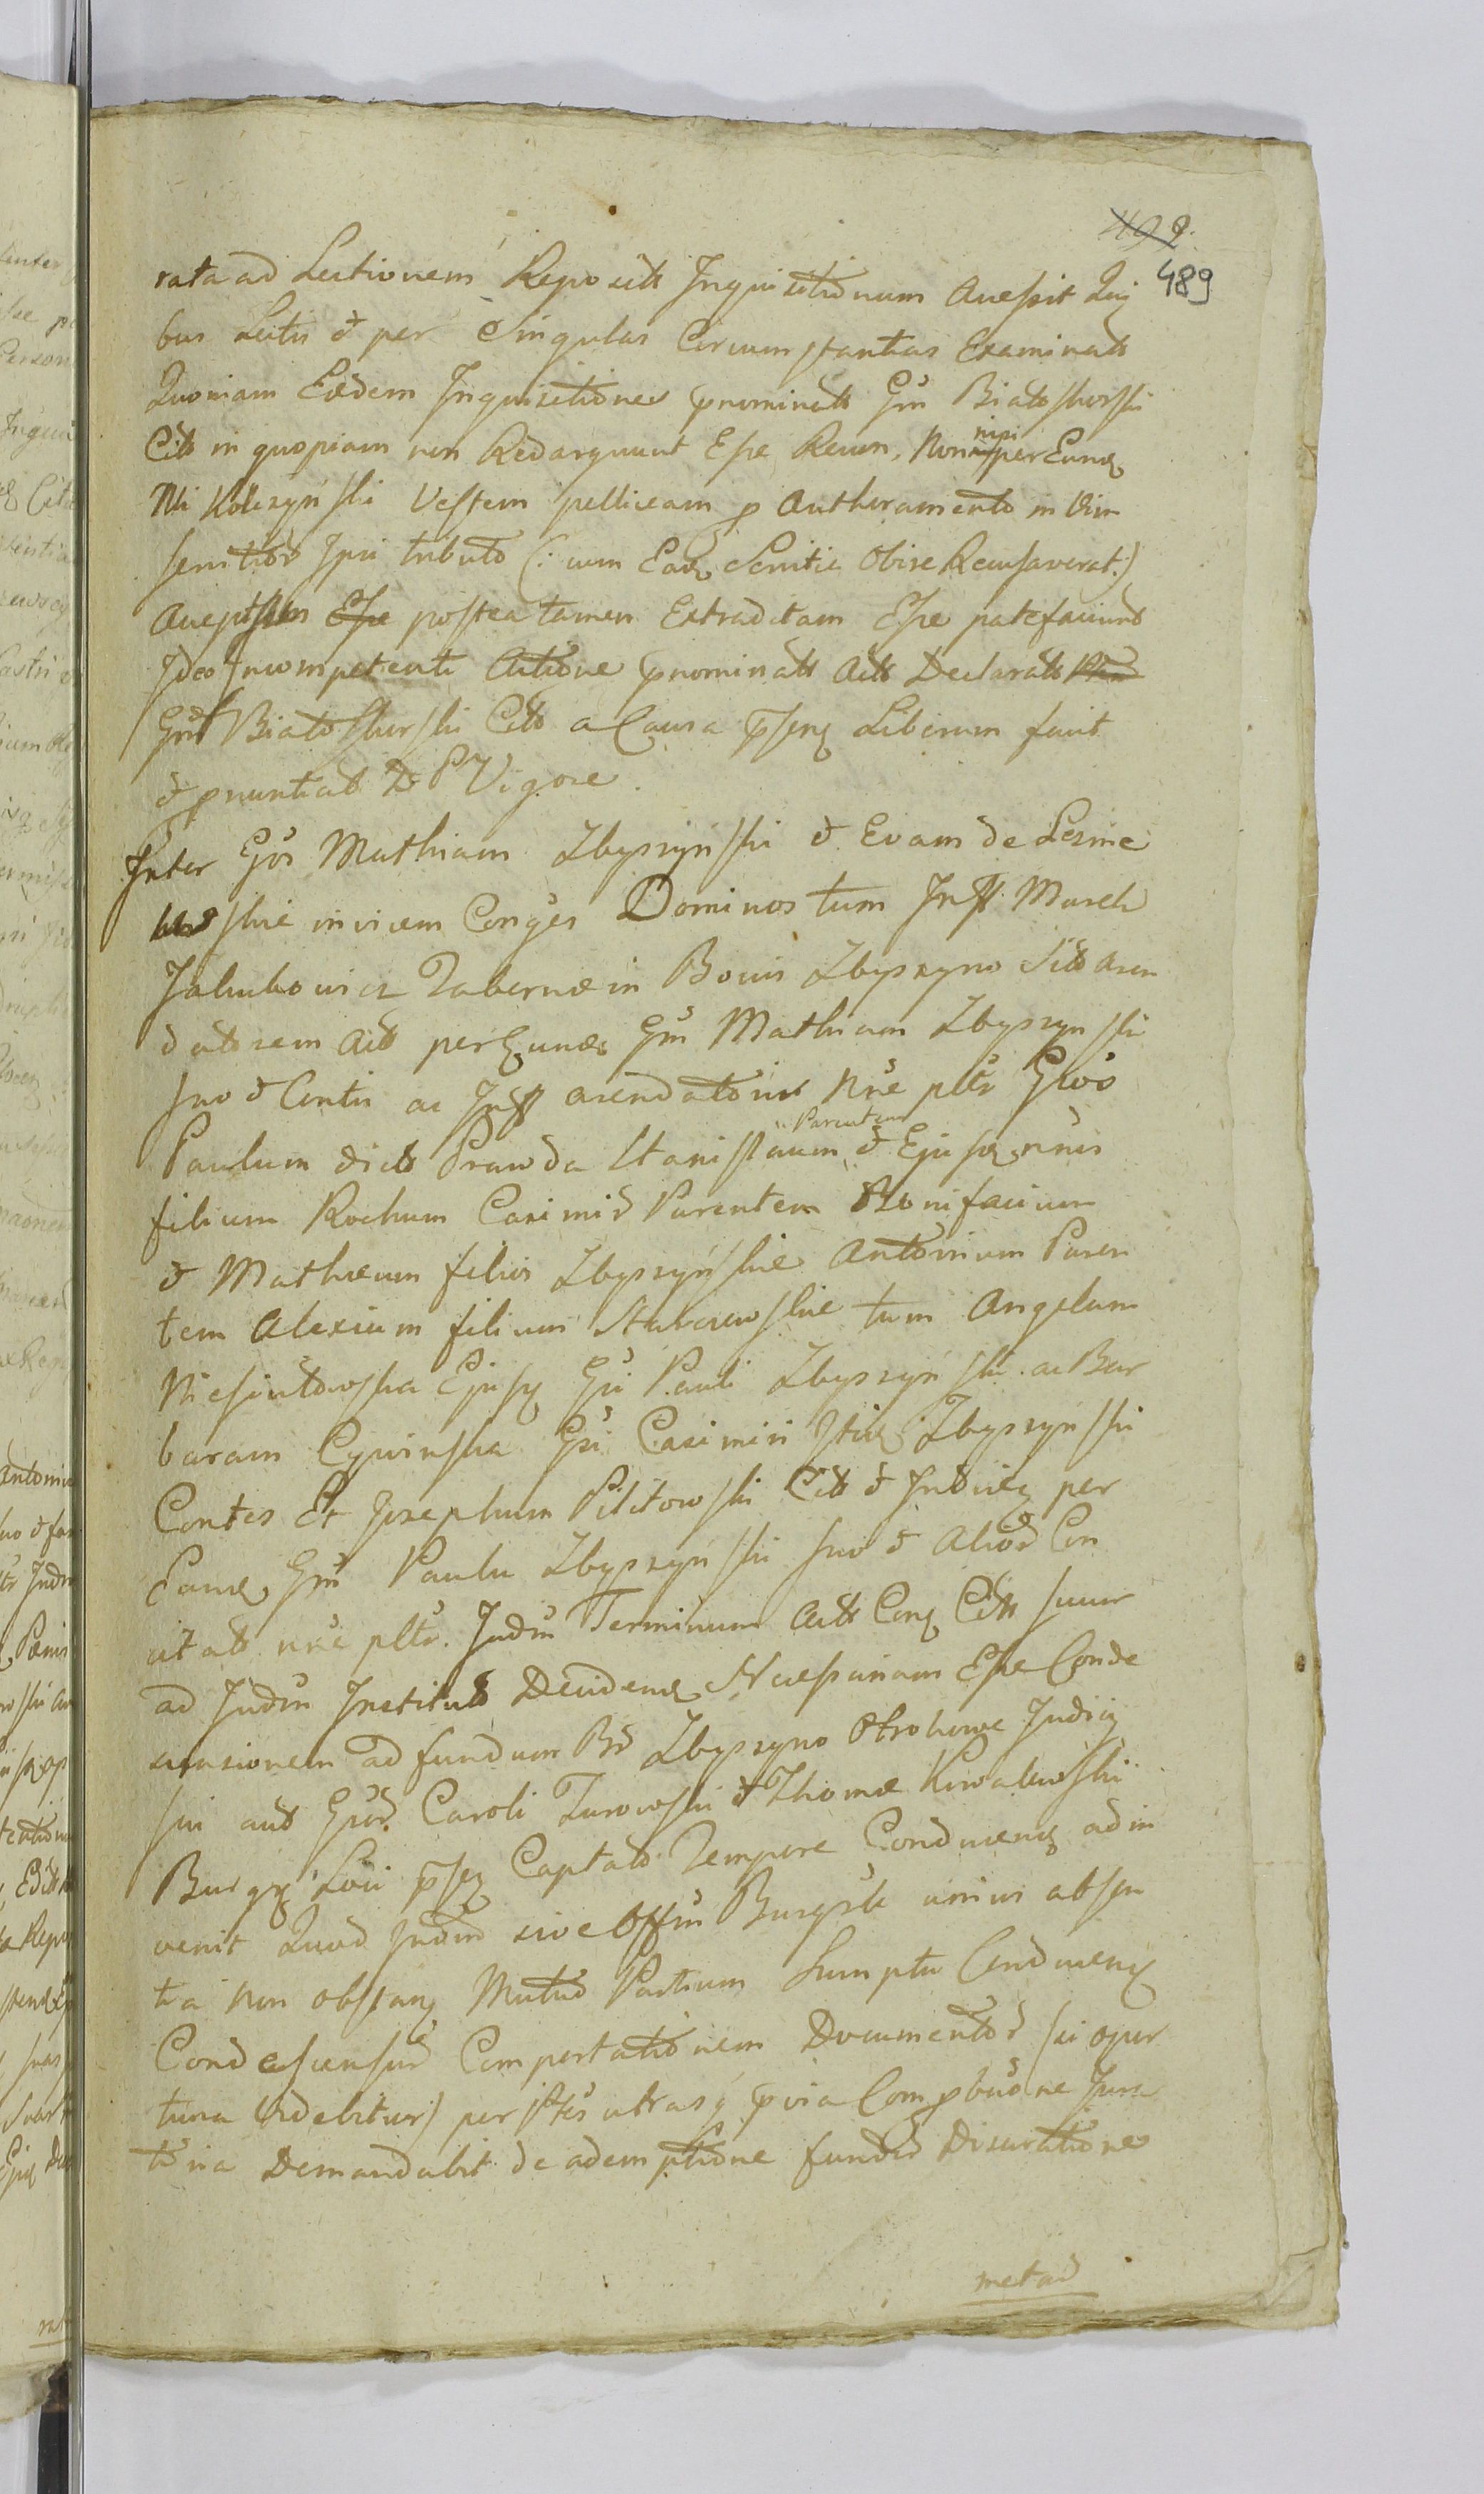 499.
489
rata ad Lectionem Reposit Inquisitionum Accessit Qui
bus Lectis et per Singulas Circumstantias Examinatt
Quoniam Eædem Inquisitiones pnominatt Gm Białoskorski
Citt in quopiam non Redarguunt Esse Reum, Non nisi per Eund
Ni Kolczyński Vestem pelliceam p Authoramento in Vim
servitior Ipsi tributo (: cum Ead Servitia Obire Recusaverat:)
Acceptam Esse postea tamen Extraditam Esse patefaciunt
Ideo Incompetenti Actione pnominatt Actt Declaratt
Gnt Białoskorski Citt a Causa pnsenq Liberum facit
et pnuntiat D P Vigore.
Inter Gos Mathiam Zbyszyński et Evam de Lesnie
wskie invicem Conges Dominos tum Inff Morsch
Jakubowicz Tabernæ in Bonis Zbyszyno Sitt Aren
datorem Actt per Eund Gm Mathiam Zbyszynski
suo et Contis ac Inff arendatoris nre pltr Gros
Paulum dictt Prawda Stanislaum Parentem et Ejusq nnis
filium Rochum Casimir Parentem Bonifacium
et Mathæum filios Zbyszyńskie Antonium Paren
tem Alexium filium Skarzewskie tum Angelam
Niesiułtowska Ejusq Gsi Pauli Zbyszyński ac Bar
baram Cywinska Gsi Casimiri Itid Zbyszynski
Contes Et Josephum Pilitowski Citt et Inducq per
Eund Gm Paulu Zbyszyński suo et Alior Con
citatt nre pltr. Judm Terminum Actt Conq Citt suum
ad Judm Institutt Decidend Necessariam Esse Conde
scensionem ad fundum Br Zbyszyno Otrokowe Judicij
sui autt Gror Caroli Turowski et Thomæ Kowalewskii
Burgq Loci pnseq Captato Tempore Conducenq adin
venit Quod Judm sive Offm Burgrle unius absen
tia non obstanq Mutuo Partium Sumptu Conducenq
Condescensur Comportationem Documentor (si opor
tuna Videbitur) per Ptes utrasq pvia Compbuone Jura
toria Demandabit de ademptione fundor Disruatione
metar